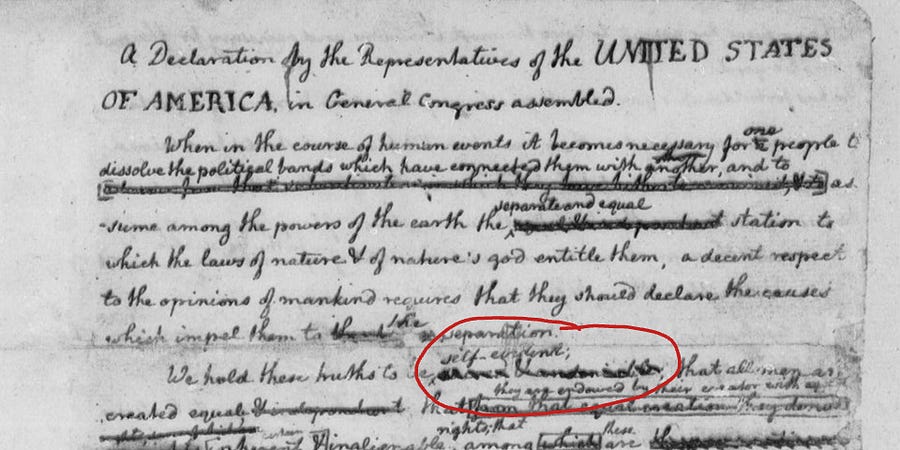 A Declaration by the Representatives of the UNITED STATES
OF AMERICA, in General Congress assembled.
When in the course of human events it becomes necessary for one people to
dissolve the political bands which have connected them with another, and to
as
-sume among the powers of the earth the separate and equal station to
which the laws of nature & of nature's god entitle them, a decent respect
to the opinions of mankind requires that they should declare the causes
which impel them to the separation.
We hold these truths to be self-evident; that all men are
created equal & independent that they are endowed by their creator with
from that equal creation they derive
rights; that these
inherent & inalienable, among which are